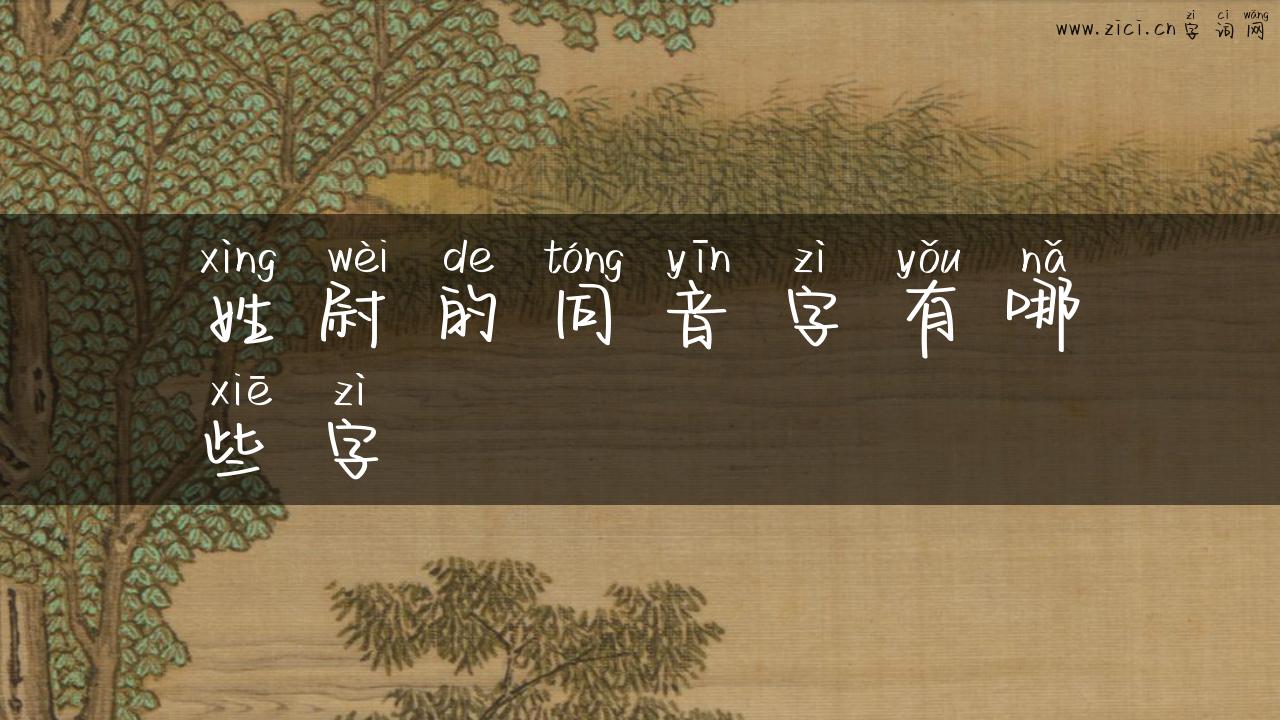 zì cí wǎng
www.zici.cn字词网
xìng wèi de tóng yīn zì yǒu nǎ
姓尉的同音字有哪
xiē zì
些字